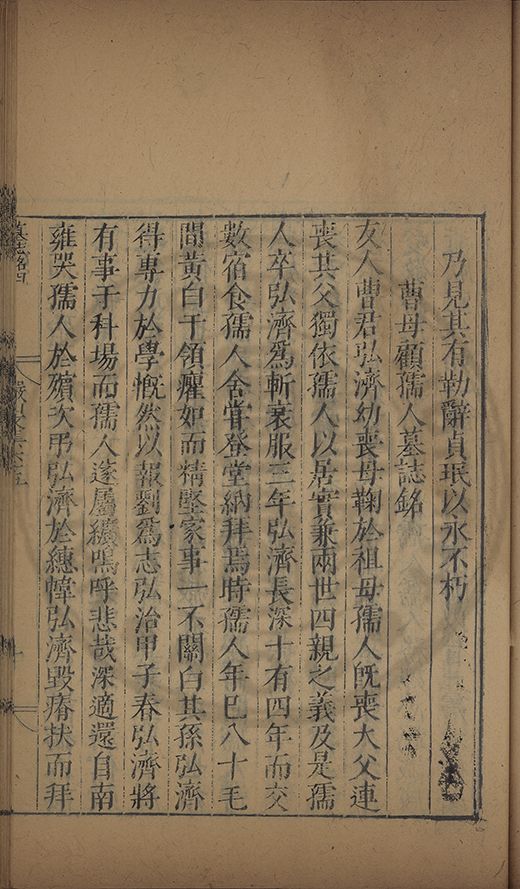 乃見其有勒辭貞珉以永不朽
曹母顧孺人墓誌銘
友人曹君弘濟幼喪母鞠於祖母孺人旣喪大父連
喪其父獨依孺人以居實兼兩世四親之義及是孺
人卒弘濟爲斬衰服三年弘濟長深十有四年而交
數宿食孺人舍嘗登堂納拜焉時孺人年已八十毛
間黃白于領癯如而精堅家事一不關白其孫弘濟
得專力於學慨然以報劉爲志弘治甲子春弘濟將
有事于科場而孺人遂屬纊嗚呼悲哉深適還自南
雍哭孺人於殯次弔弘濟於繐幃弘濟毀瘠扶而拜